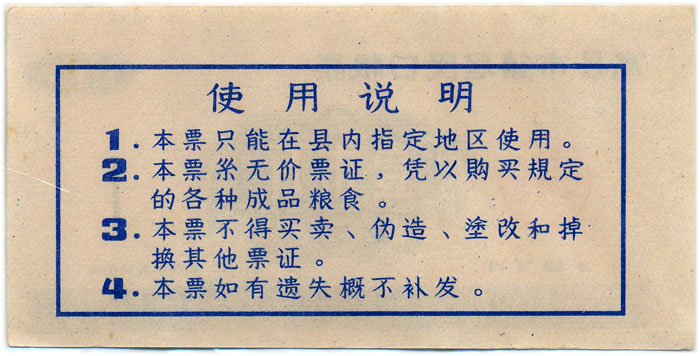 使用说明
1.本票只能在县内指定地区使用。
2.本票糸无价票证，凭以購买規定
的各种成品粮食。
3.本票不得买卖、伪造、塗改和掉
換其他票证。
4.本票如有遗失概不补发。